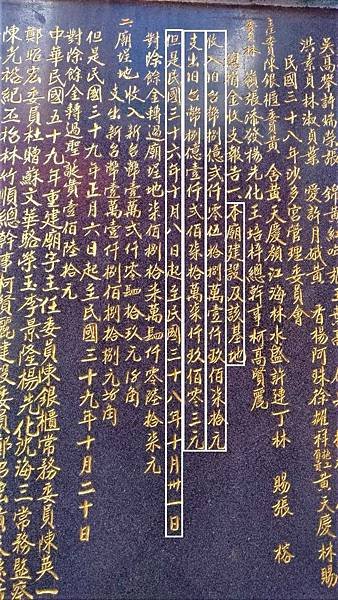 吳高攀許瑞榮張錦
洪素貞林淑貞葉愛新月娥黃香楊阿珠徐耀祥黃天慶林賜
民國三十八年沙多宮管理委員會
主任委員陳銀櫃委員黃含黃天慶顏江海林水盛許建丁林賜張榕
張添發楊先化王培梓總幹事柯高賢麗
捐金收支報告一本廟建設及該基地
收入旧台幣捌億貳仟零伍拾捌萬壹仟玖佰柒拾元
支出旧台幣捌億壹仟貳佰柒拾萬柒仟玖佰零三元
但是民國三十六年十月八日起至民國三十八年十月卅一日
對除餘金轉過廟埕地柒佰捌拾柒萬肆仟零陸拾柒元
二廟埕地收入新台幣壹萬貳仟零肆拾玖元15角
支出新台幣壹萬壹仟捌佰捌拾捌元35角
對除餘金轉過聖誕費壹佰陸拾元
但是民國三十九年正月六日起至民國三十九年十月二十日
中華民國五十九年重建廟宇主任委員陳銀櫃常務委員陳英一
鄭昭宏委員杜贈蘇文華駱榮玉李景隆楊先化沈海三常務監察
陳光裕紀丕招林竹順總幹事柯賢麗建設委員鄭昭